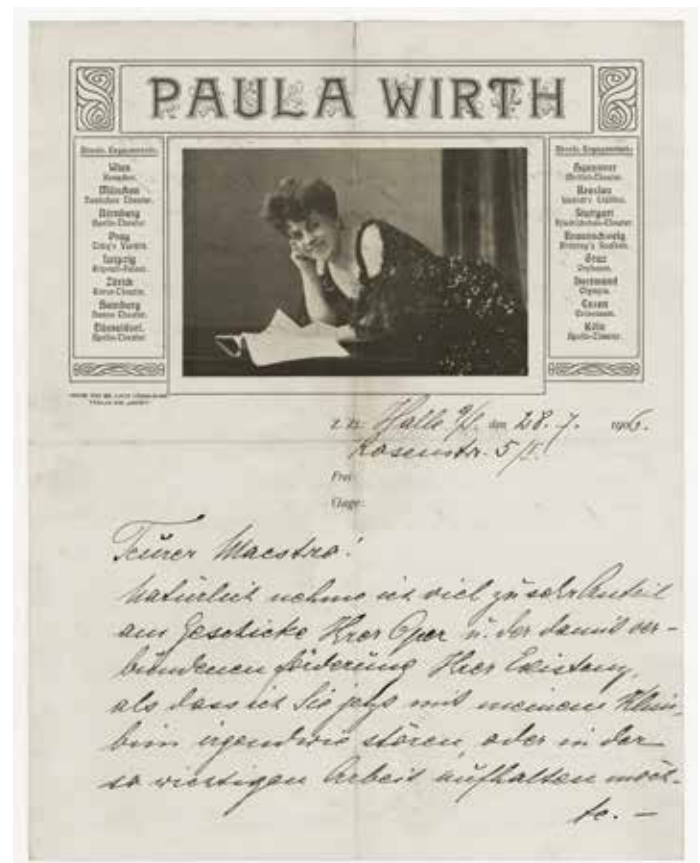 PAULA WIRTH
Wien
Ronacher.
München
Deutsches Theater.
Nürnberg
Apollo-Theater.
Prag
Leipzig
Krystall-Palast.
Zürich
Corso-Theater.
Hamburg
Hansa-Theater.
Düsseldorf.
Apollo-Theater
Hannover
Mellini-Theater.
Breslau
Stuttgart
Braunschweig
Graz
Orpheum.
Dortmund
Olympia.
Essen
Colosseum.
Köln
Apollo-Theater.
z. Zt. Halle a/S. den 28. 7. 1906.
Rosenstr. 5/I.
Frei:
Gage:
Teurer Maestro!
Natürlich nehme ich viel zu sehr Anteil
am Geschicke Ihrer Oper u. der damit ver-
bundenen Förderung Ihrer Existenz,
als dass ich Sie jetzt mit meinem Klim-
bim irgendwie stören, oder in der
so wichtigen Arbeit aufhalten möch-
te. –